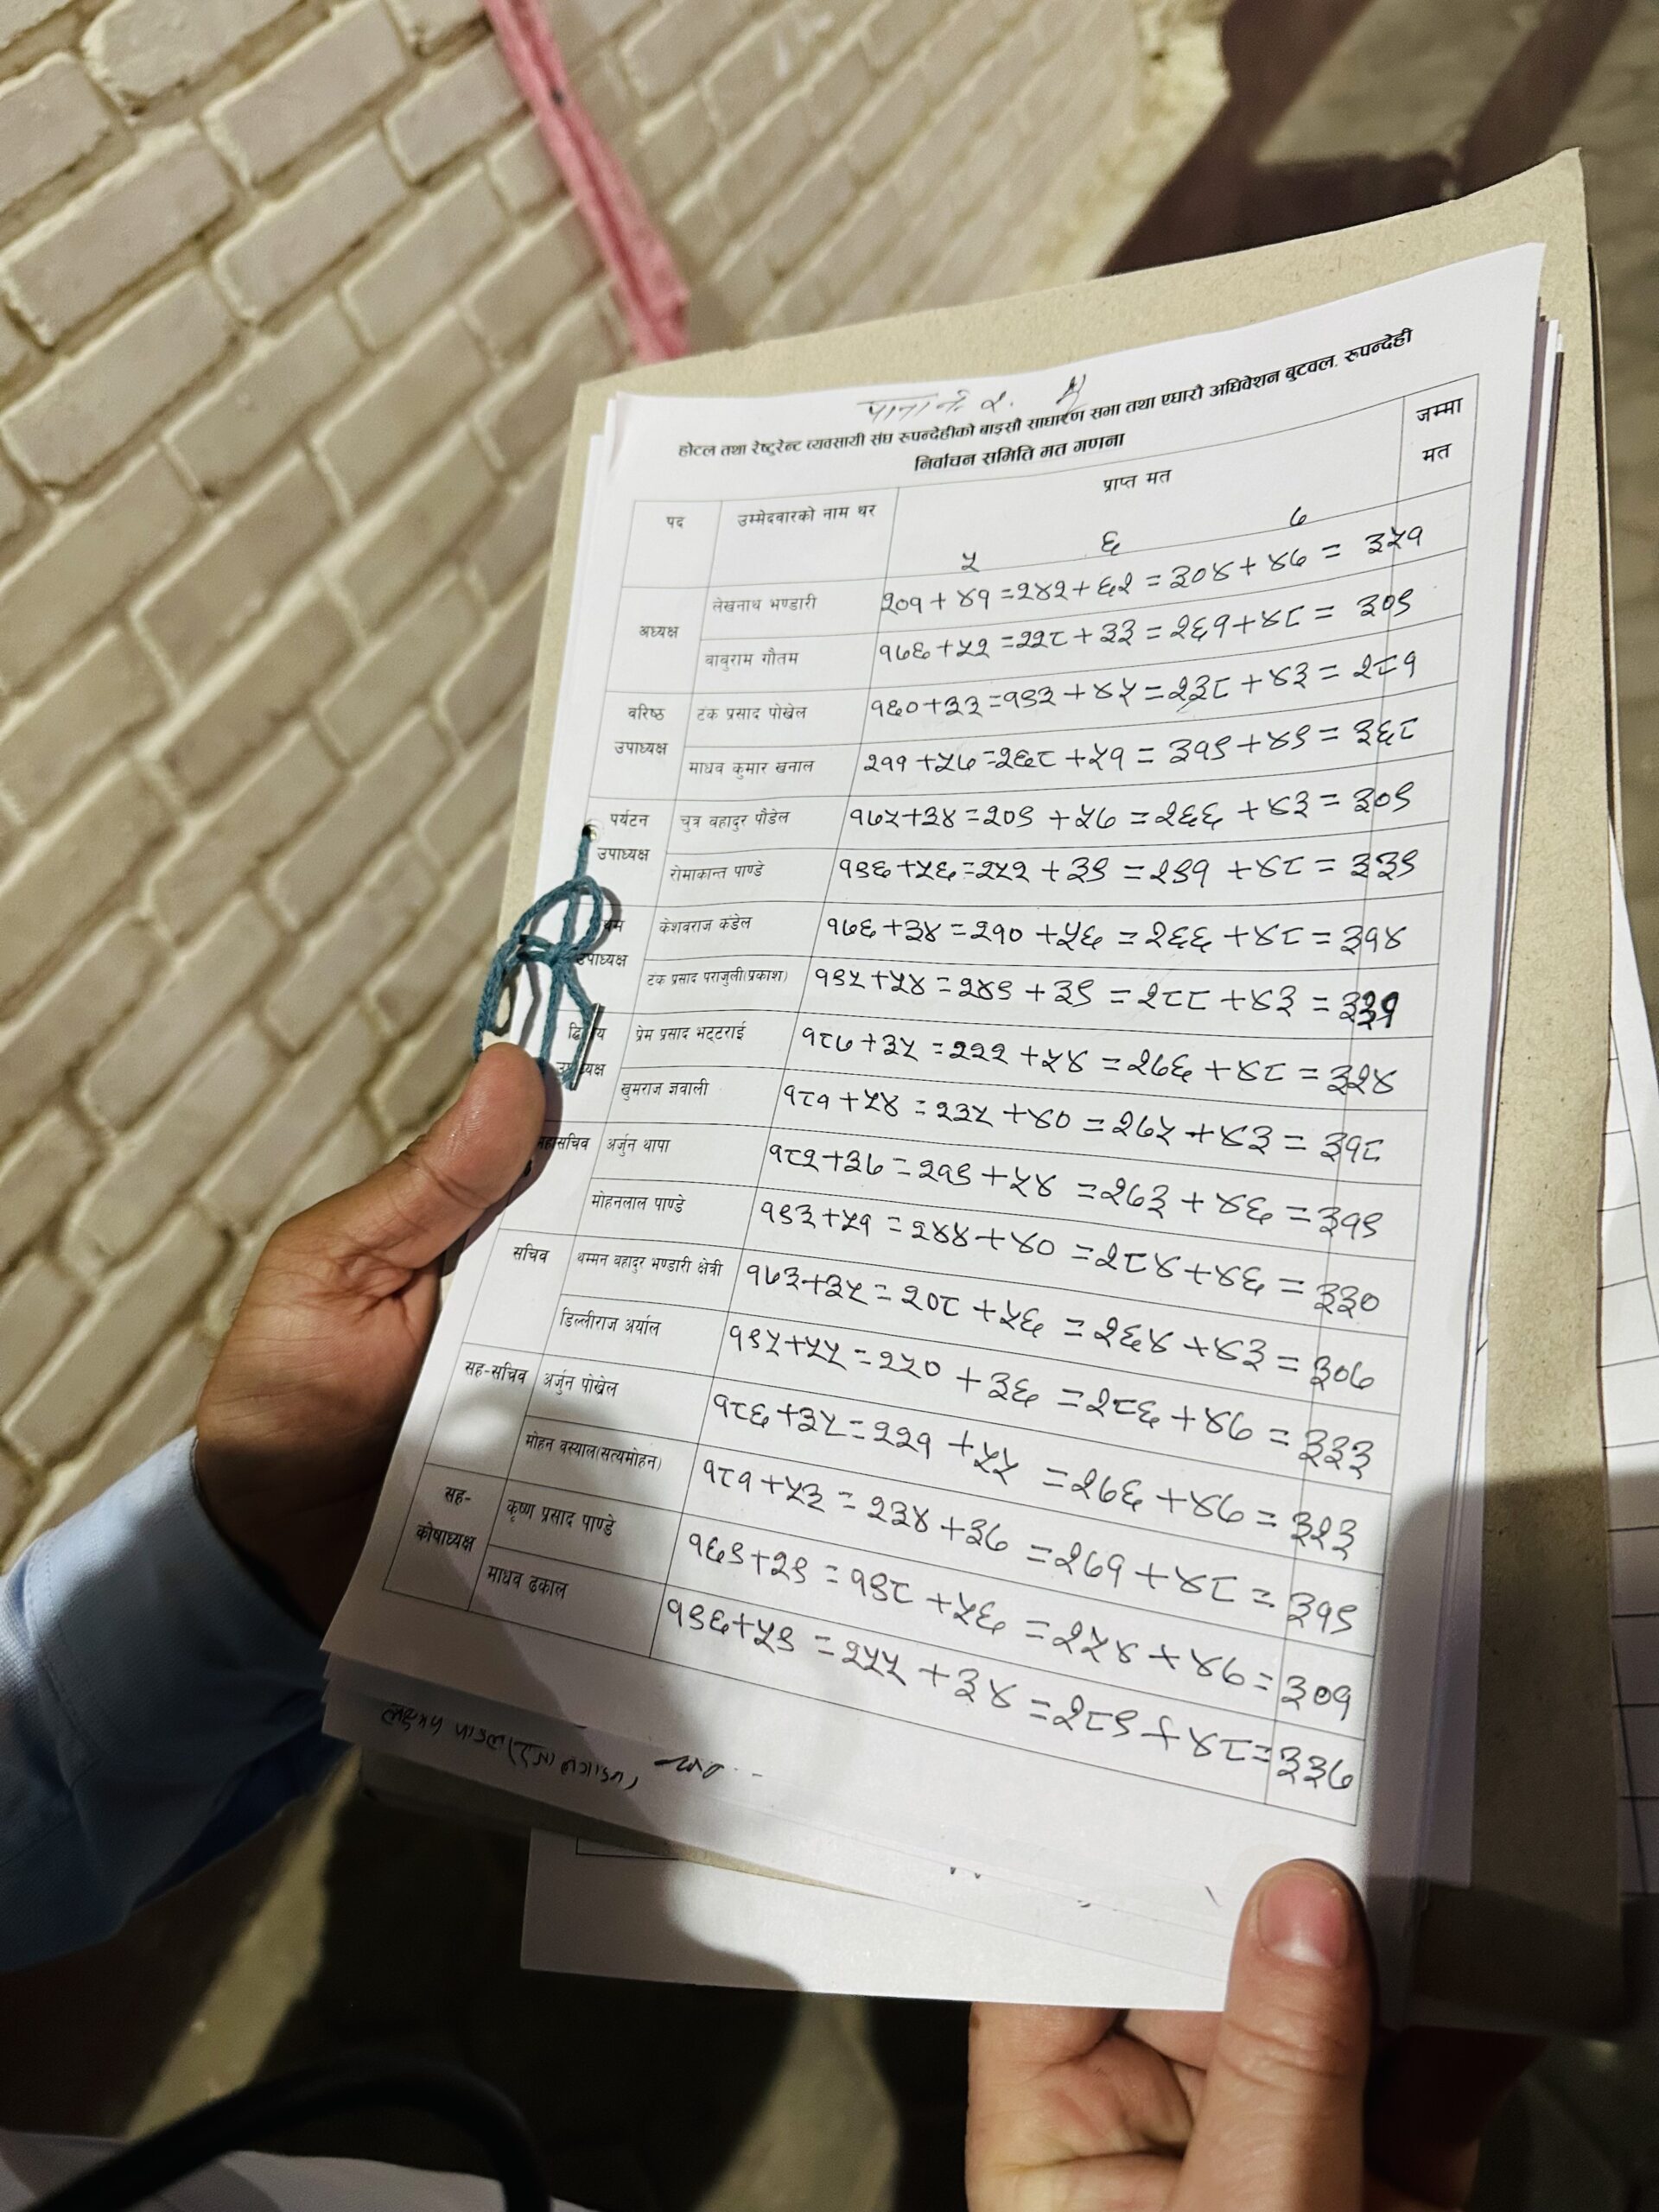 पाना नं. २.
होटल तथा रेष्टुरेन्ट व्यवसायी संघ रुपन्देहीको बाइसौ साधारण सभा तथा एघारौ अधिवेशन बुटवल. रुपन्देही
निर्वाचन समिति मत गणना
पद उम्मेदवारको नाम थर प्राप्त मत जम्मा मत
५ ६ ७
अध्यक्ष लेखनाथ भण्डारी २०१ + ४१ = २४२ + ६२ = ३०४ + ४७ = ३५१
बाबुराम गौतम १७६ + ५२ = २२८ + ३३ = २६१ + ४८ = ३०९
वरिष्ठ उपाध्यक्ष टंक प्रसाद पोखेल १६० + ३३ = १९३ + ४५ = २३८ + ४३ = २८१
माधव कुमार खनाल २११ + ५७ = २६८ + ५१ = ३१९ + ४९ = ३६८
पर्यटन उपाध्यक्ष चुत्र बहादुर पौडेल १७५ + ३४ = २०९ + ५७ = २६६ + ४३ = ३०९
रोमाकान्त पाण्डे १९६ + ५६ = २५२ + ३९ = २९१ + ४८ = ३३९
उपाध्यक्ष केशवराज कंडेल १७६ + ३४ = २१० + ५६ = २६६ + ४८ = ३१४
टंक प्रसाद पराजुली(प्रकाश) १९५ + ५४ = २४९ + ३९ = २८८ + ४३ = ३३१
द्वितीय उपाध्यक्ष प्रेम प्रसाद भट्टराई १८७ + ३५ = २२२ + ५४ = २७६ + ४८ = ३२४
खुमराज ज्ञवाली १८१ + ५४ = २३५ + ४० = २७५ + ४३ = ३१८
महासचिव अर्जुन थापा १८२ + ३७ = २१९ + ५४ = २७३ + ४६ = ३१९
मोहनलाल पाण्डे १९३ + ५१ = २४४ + ४० = २८४ + ४६ = ३३०
सचिव थम्मन बहादुर भण्डारी क्षेत्री १७३ + ३५ = २०८ + ५६ = २६४ + ४३ = ३०७
डिल्लीराज अर्याल १९५ + ५५ = २५० + ३६ = २८६ + ४७ = ३३३
सह-सचिव अर्जुन पोखेल १८६ + ३५ = २२१ + ५५ = २७६ + ४७ = ३२३
मोहन बस्याल(सत्यमोहन) १८१ + ५३ = २३४ + ३७ = २७१ + ४८ = ३१९
सह-कोषाध्यक्ष कृष्ण प्रसाद पाण्डे १६९ + २९ = १९८ + ५६ = २५४ + ४७ = ३०१
माधव ढकाल १९६ + ५९ = २५५ + ३४ = २८९ + ४८ = ३३७